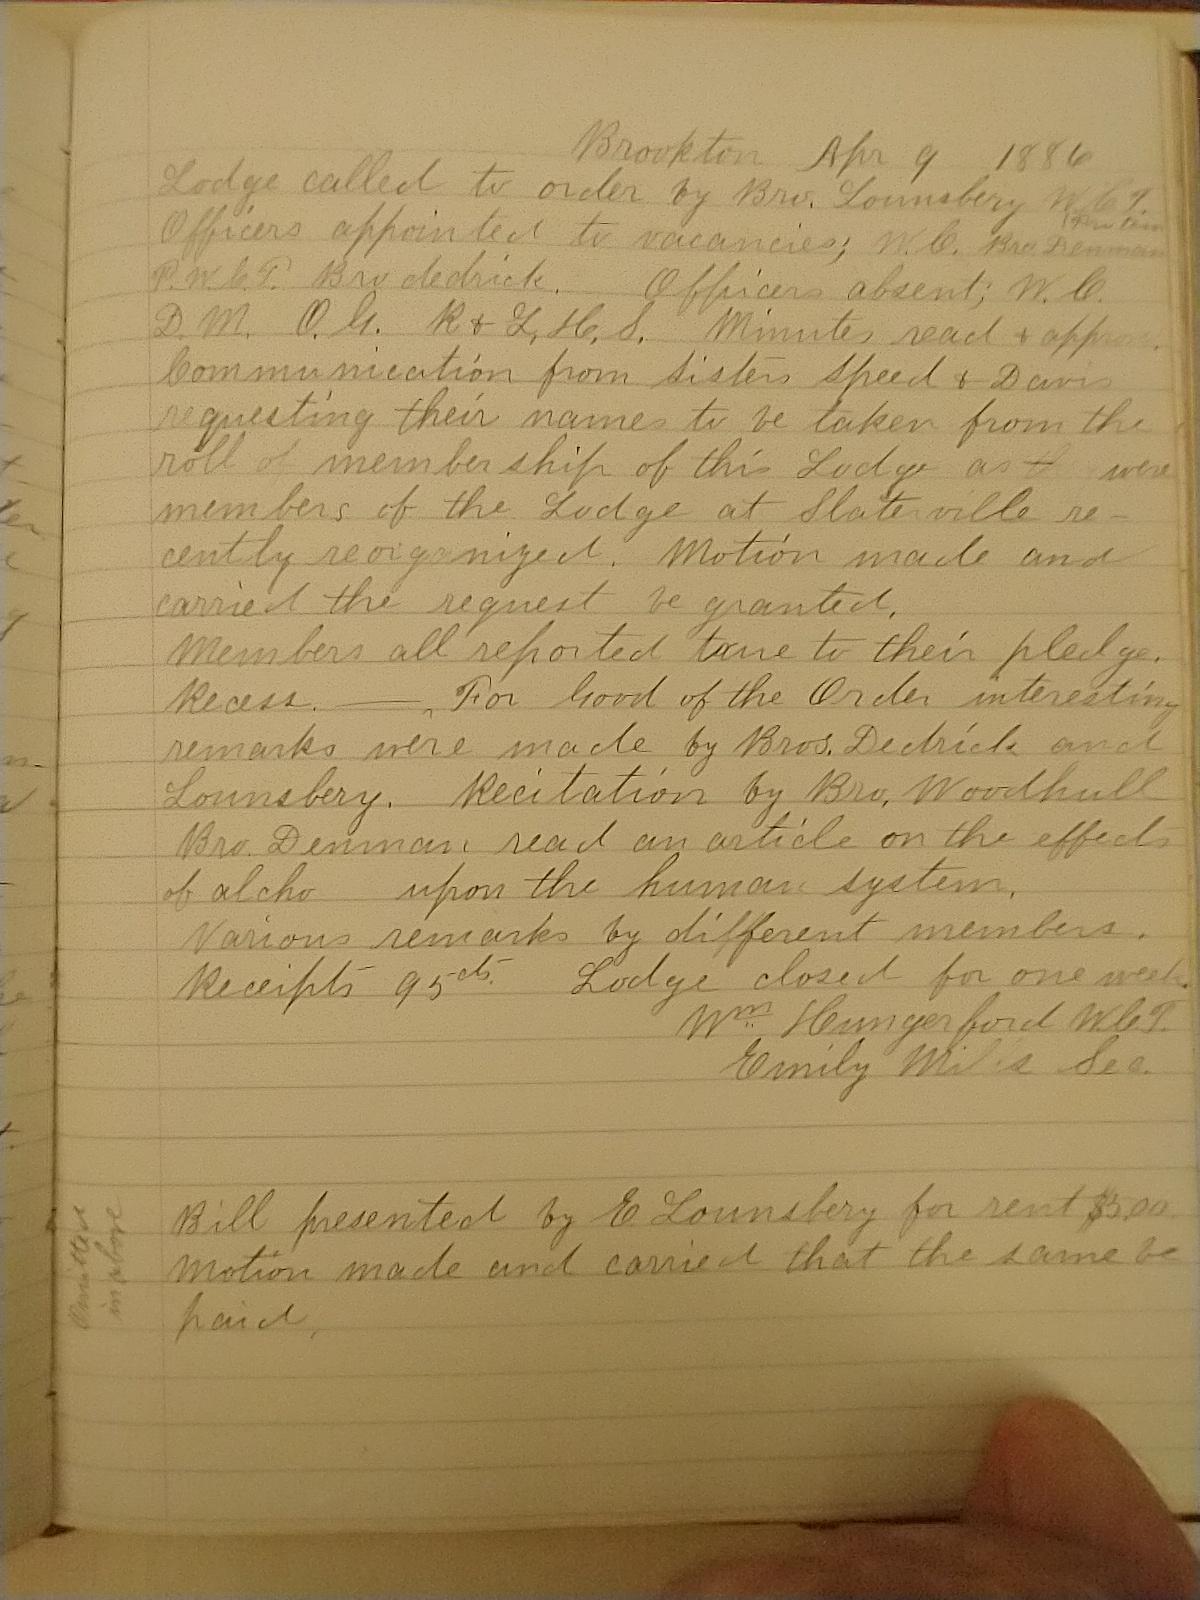 Brookton Apr 9 1886
Lodge called to order by Bro. Lounsbery W.C.T.
Officers appointed to vacancies; W.C. Bro. Denman
P.W.C.T. Bro dedrick. Officers absent; W.C.
D.M. O.G. R & L, H, S. Minutes read &
Communication from sisters Speed & Davis
requesting their names to be taken from the
roll of membership of this Lodge as were
members of the Lodge at Slaterville re-
cently reorganized. Motion made and
carried the request be granted.
Members all reported true to their pledge.
Recess. — For Good of the Order interesting
remarks were made by Bros. Dedrick and
Lounsbery. Recitation by Bro. Woodhull
Bro. Denman read an article on the effects
of alcho upon the human system.
Various remarks by different members.
Receipts 95cts. Lodge closed for one week.
Wm Hungerford W.C.T.
Emily Sec.
Omitted
in above
Bill presented by E Lounsbery for rent $5.00
Motion made and carried that the same be
paid,